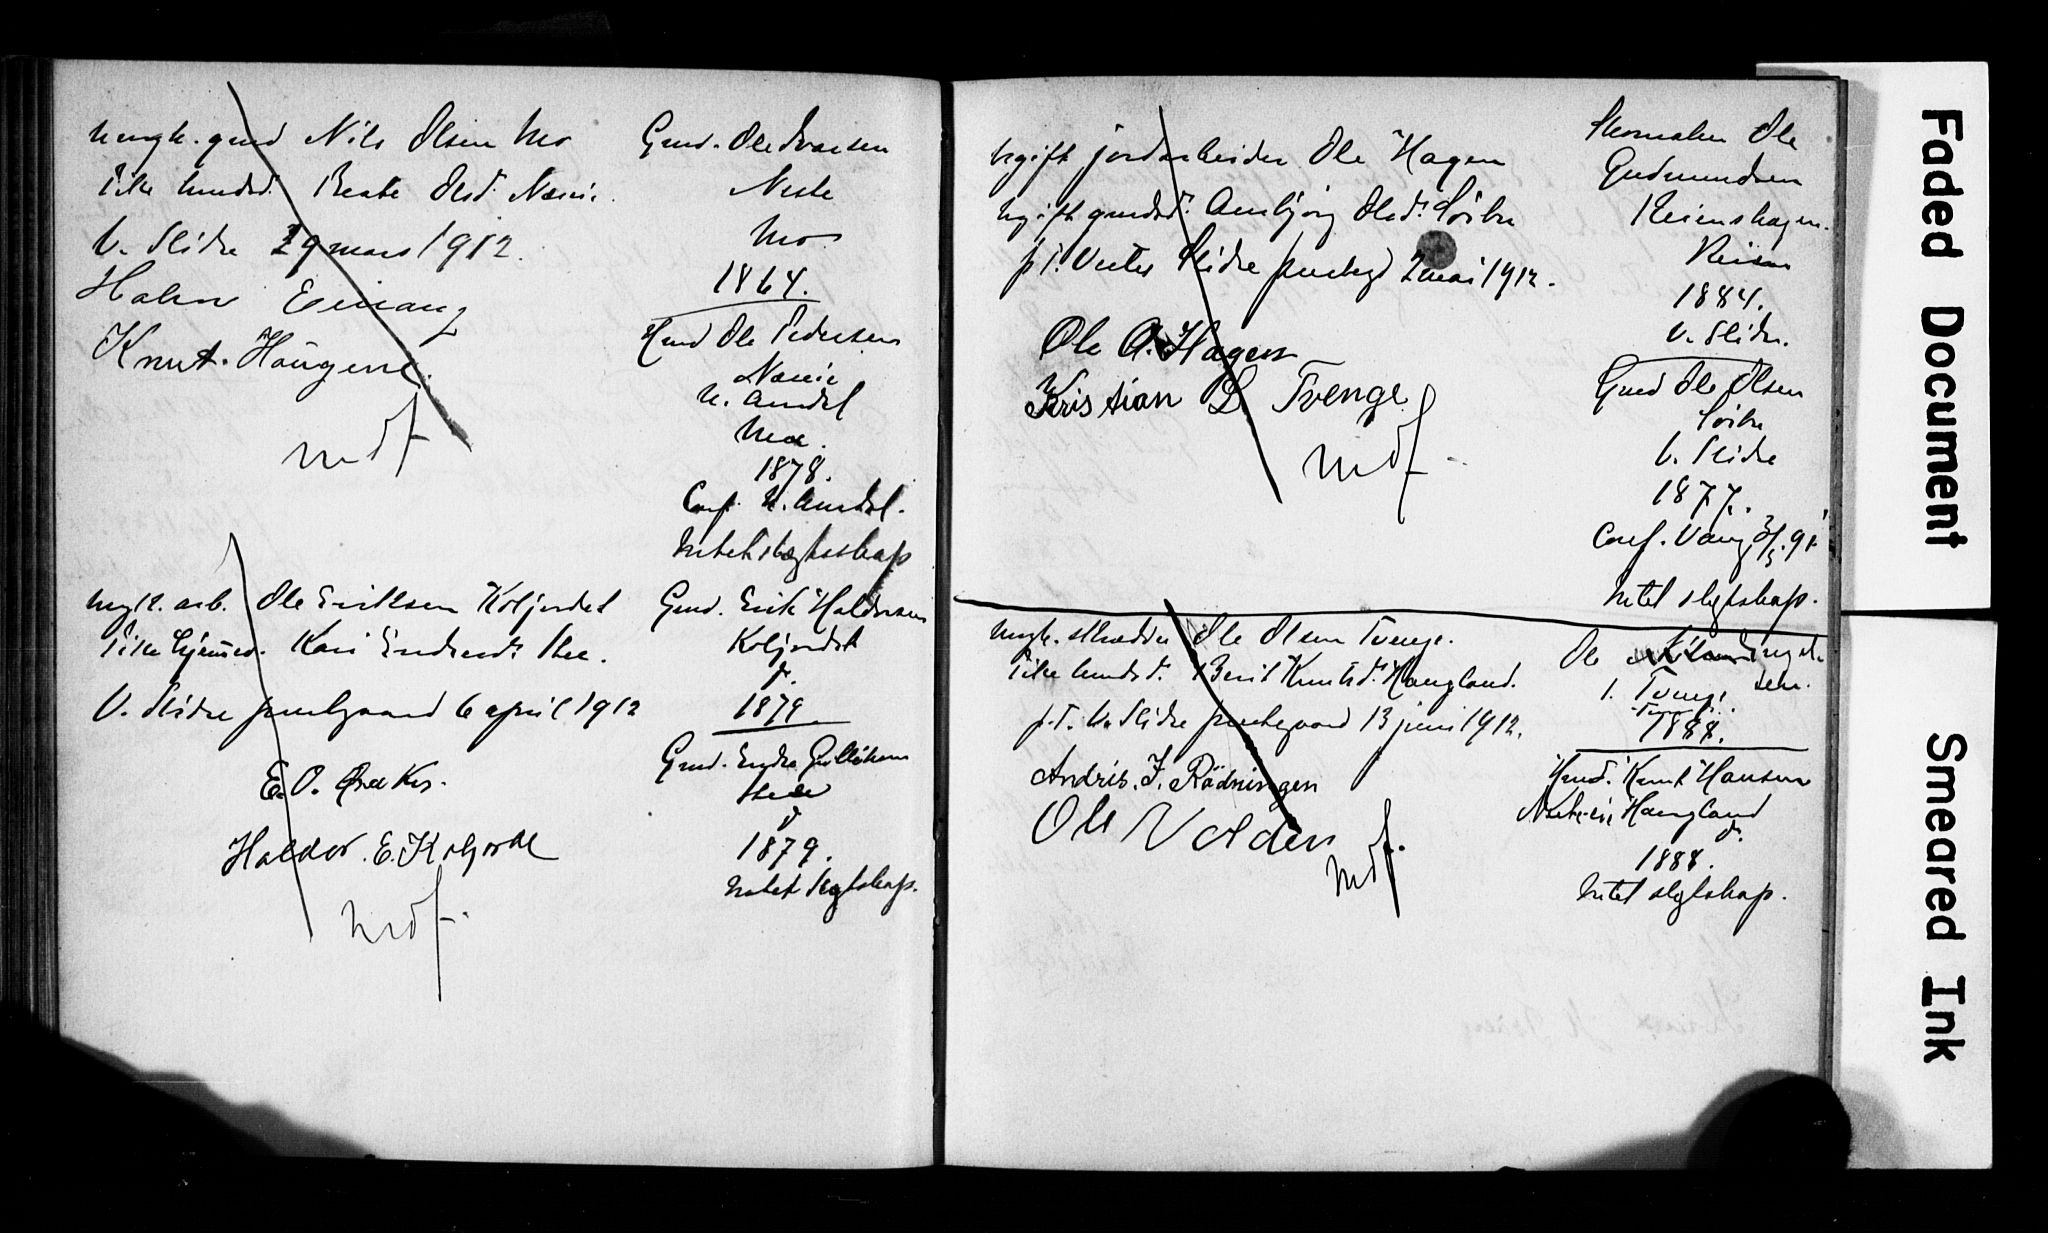 Ungk. gmd Nils Olsen Mo
Pike husmd. Beate Olsd. Næsie.
V. Slidre 29 mars 1912.
Halvor Einang
Knut. Haugene.
mdf
Gmd. Ole Ivarsen
Neste
Mo
1864.
Hmd Ole Pedersen
Næsie
N. Aurdal
Mo.
1878.
Conf. N. Aurdal.
Intet slægtsskap
Ungk. arb. Ole Eriksen Koljordet
Pike hjemmev. Kari Endresd.
V. Slidre prestegaard 6 april 1912
E. O.
Haldor. E. Koljorde
mdf.
Gmd. Erik Haldorsen
Koljordet
1879
Gmd. Endre
1879.
Intet slegtskap.
Ugift jordarbeider Ole Hagen
Ugift gmdsd. Ambjørg Olsd. Sørbu
p.t. Vestre Slidre prestegd 2 mai 1912.
Ole A. Hagen
Kristian L. Tvenge
mdf
Skomaker Ole
Gudmundsen
Reinshagen.
1884.
V. Slidre.
Gmd Ole Olsen
Sørbu
V. Slidre
1877.
Conf. Vang
Intet slegtskap.
Ungk. skrædder Ole Olsen Tvenge.
Pike husmd. Berit Knutsd. Haugland.
p.t. V. Slidre prestegaard 13 juni 1912.
Andris. I. Rödningen
Ole Volden
mdf.
Ole Engebr
sen.
Tvenge
1888.
Hmd. Knut Hansen
Haugland
1888.
Intet slegtskap.
Faded Document
Smeared Ink